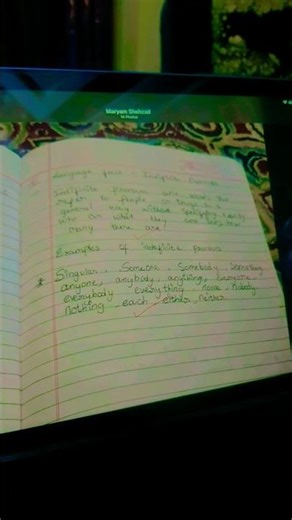 Maryam Shehzad
Language focus - Indefinite Pronouns
Indefinite pronouns are words that
refer to people or things in a
general way without specifying exactly
who or what they are or how
many there are!
Examples of indefinite pronouns
Singular, Someone, Somebody, Something
anyone, anybody, anything, everyone,
everybody everything none, Nobody
Nothing each, either, neither